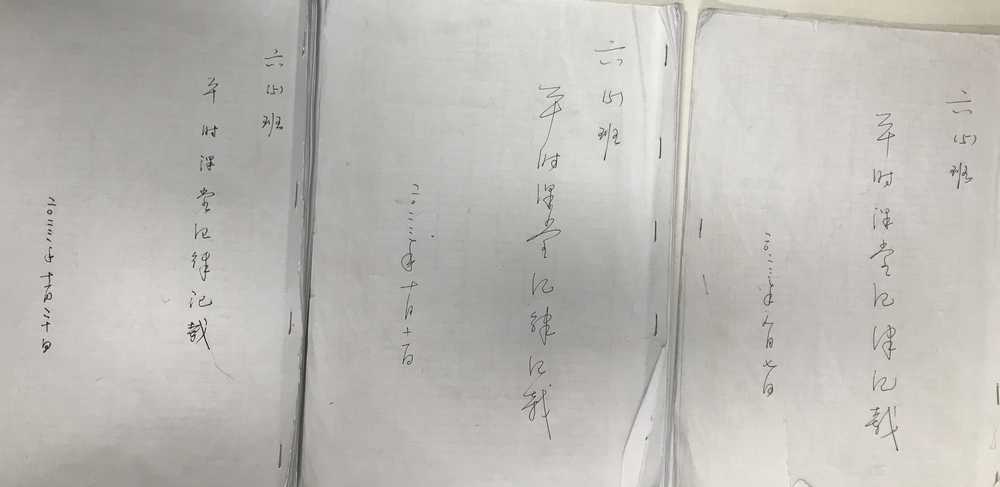 六(5)班
平时课堂纪律记载
二〇二二年九月七日
六(5)班
平时课堂纪律记载
二〇二二年十月十日
六(5)班
平时课堂纪律记载
二〇二二年十一月二十日